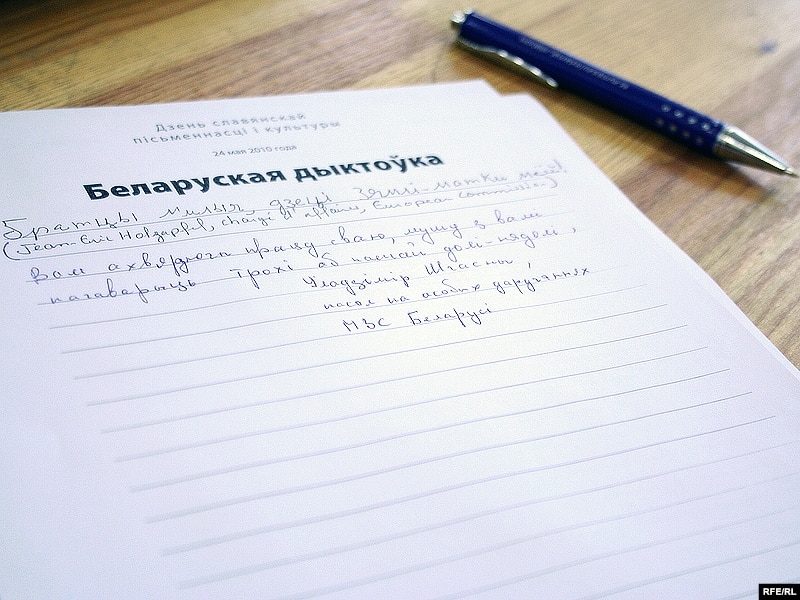 Дзень славянскай
пісьменнасці і культуры
24 мая 2010 года
Беларуская дыктоўка
Братцы мілыя, дзеці Зямлі-маткі маёй!
(Jean-Eric Holzapfel, chargé d'affaires, European Commission)
Вам ахвяруючы працу сваю, мушу з вамі
пагаварыць трохі аб нашай долі-нядолі,
Уладзімір Шчасны,
пасол па асобых даручэннях
МЗС Беларусі
RFE/RL